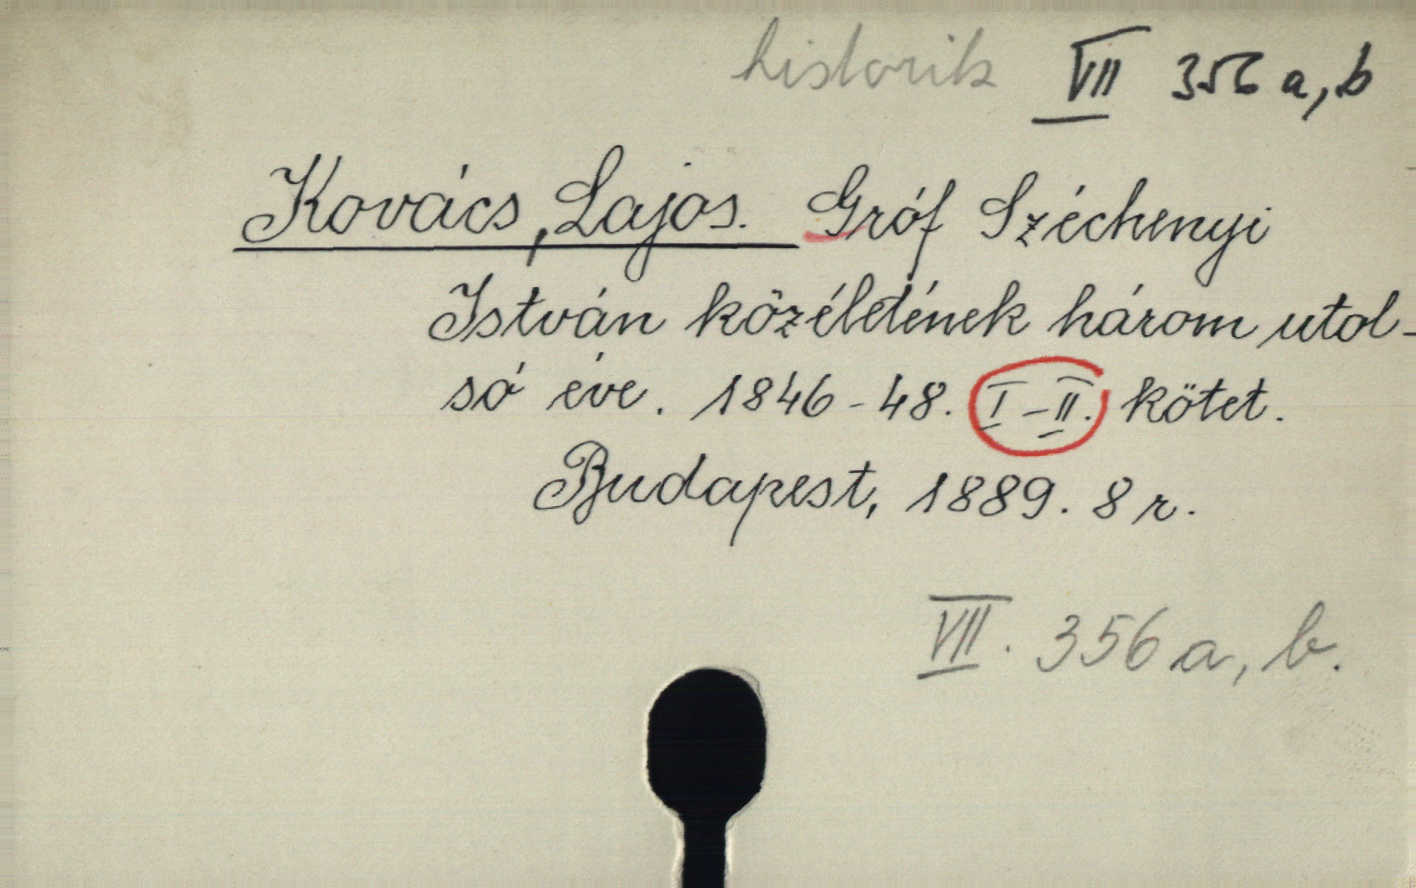 historik VII 356 a, b
Kovács, Lajos. Gróf Széchenyi
István közéletének három utol-
só éve. 1846-48. I-II. kötet.
Budapest, 1889. 8 r.
VII. 356 a, b.